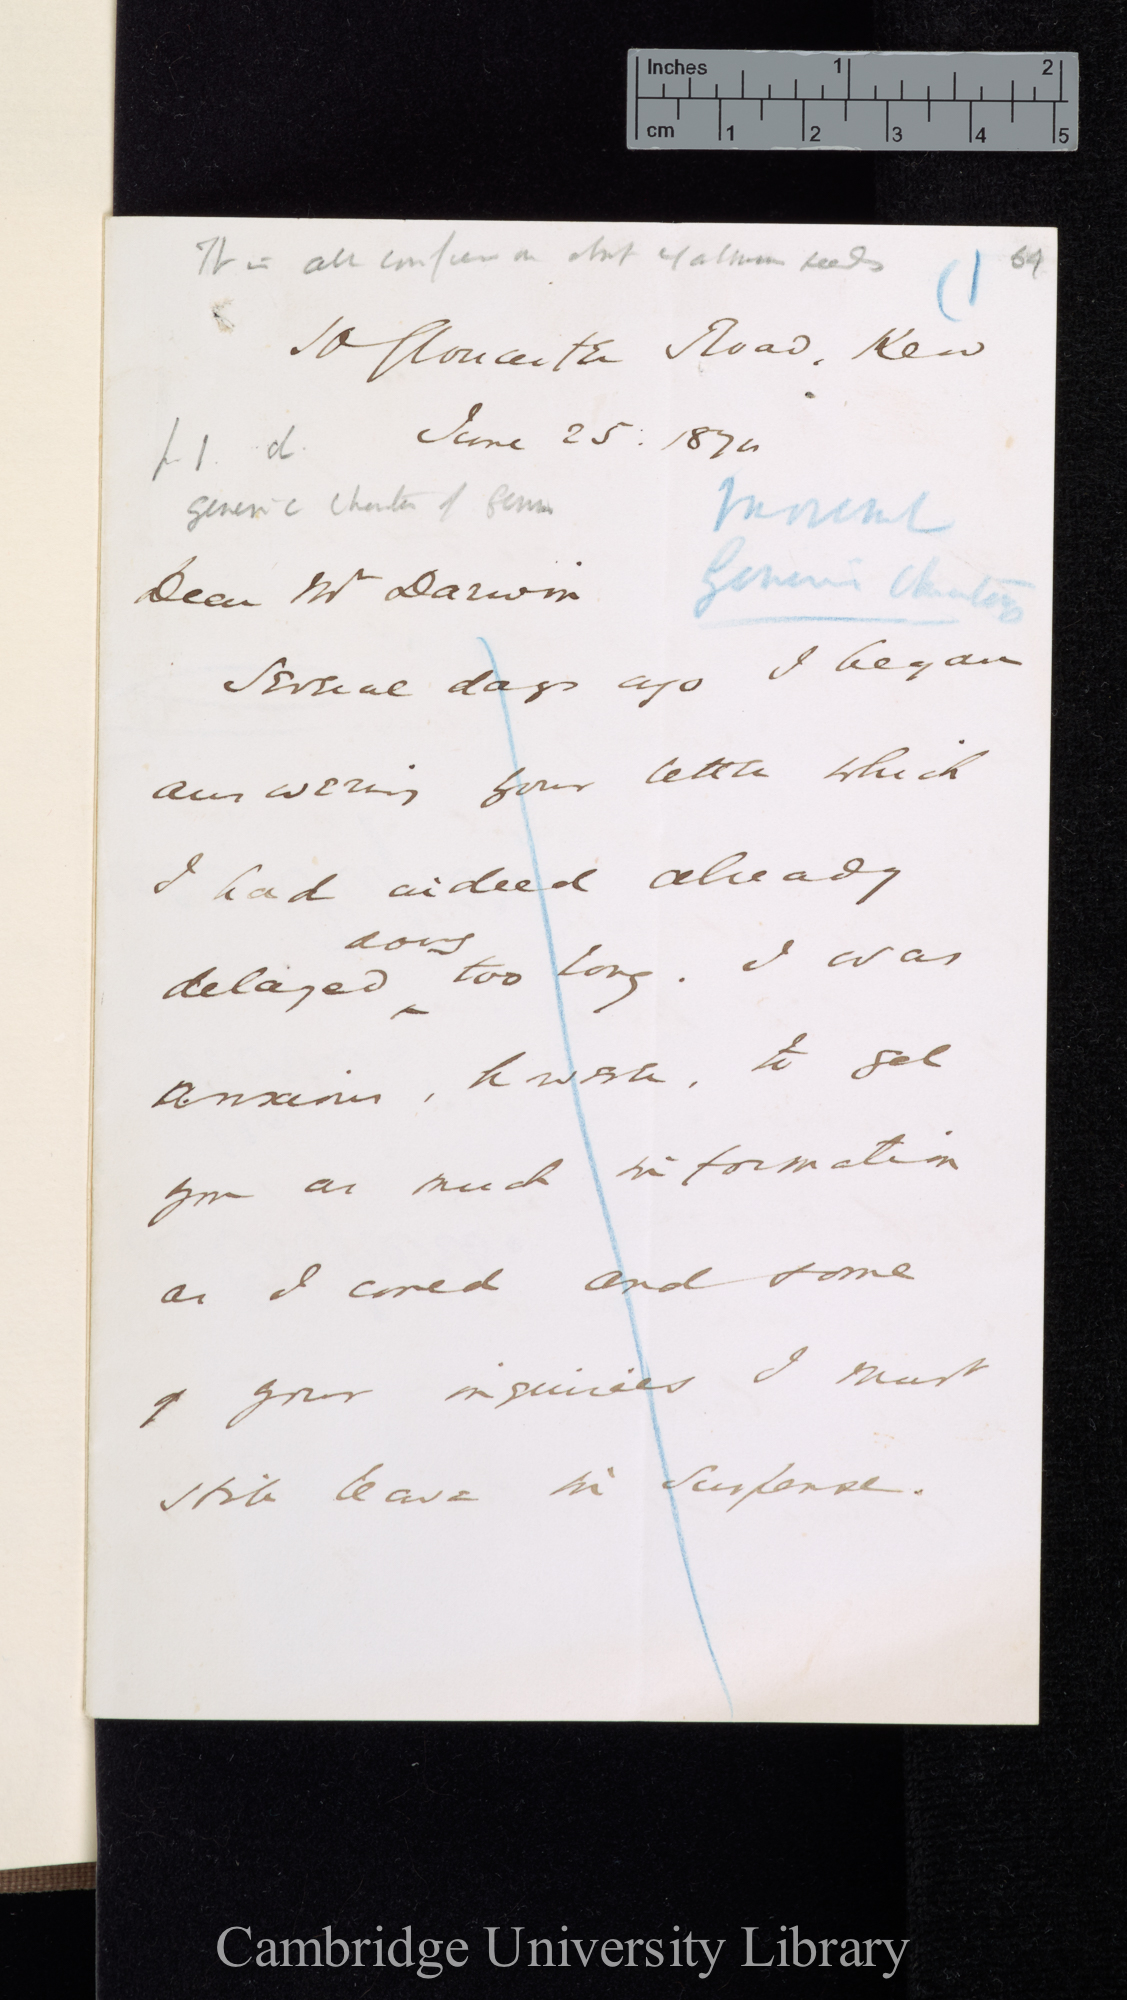 Inches 1 2
cm 1 2 3 4 5
It is all confusion about exalbum seeds
(1 64
10 Gloucester Road, Kew
June 25: 1874
p. 1. d.
generic character of
Movement
Generic Characters
Dear Mr Darwin
Several days ago I began
answering your letter which
I had indeed already
doing
delayed ‸ too long. I was
anxious, hwever, to get
you as much information
as I coued and some
of your inquiries I must
still leave in suspense.
Cambridge University Library